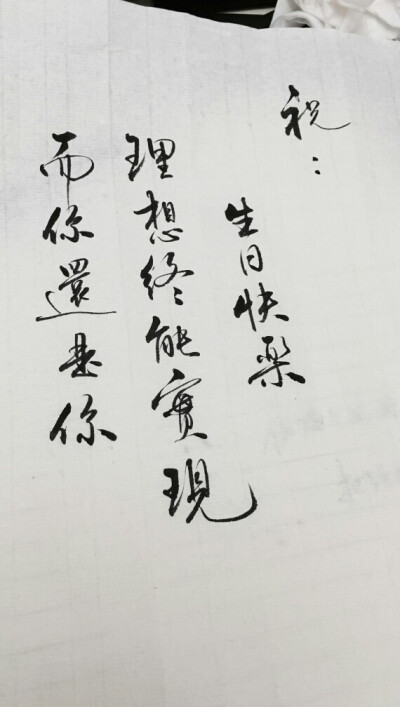 祝：
生日快樂
理想終能實現
而你還是你